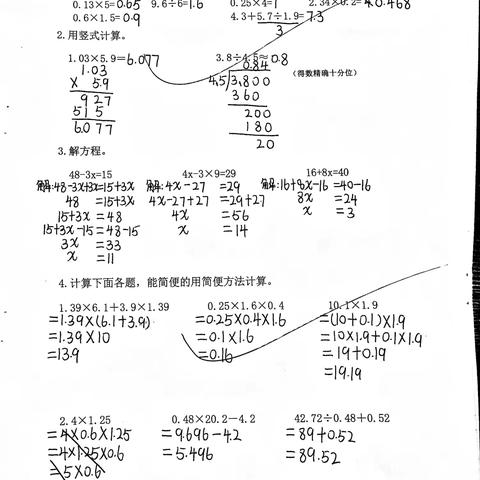 0.13×5=0.65 9.6÷6=1.6 0.25×4=1 2.34×0.2=0.468
0.6×1.5=0.9 4.3+5.7÷1.9=7.3
3
2.用竖式计算。
1.03×5.9=6.077 3.8÷4.5≈0.8 (得数精确十分位)
1.03
× 5.9
927
515
6.077
0.84
4.5 3.800
360
200
180
20
3.解方程。
48-3x=15 4x-3×9=29 16+8x=40
解:48-3x+3x=15+3x 解:4x-27=29 解:16+8x-16=40-16
48=15+3x 4x-27+27=29+27 8x=24
15+3x=48 4x=56 x=3
15+3x-15=48-15 x=14
3x=33
x=11
4.计算下面各题，能简便的用简便方法计算。
1.39×6.1+3.9×1.39 0.25×1.6×0.4 10.1×1.9
=1.39×(6.1+3.9) =0.25×0.4×1.6 =(10+0.1)×1.9
=1.39×10 =0.1×1.6 =10×1.9+0.1×1.9
=13.9 =0.16 =19+0.19
=19.19
2.4×1.25 0.48×20.2-4.2 42.72÷0.48+0.52
=4×0.6×1.25 =9.696-4.2 =89+0.52
=4×1.25×0.6 =5.496 =89.52
=5×0.6